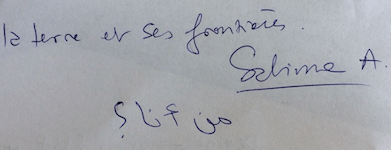 la terre et ses frontières.
Salima A.
من أنا؟